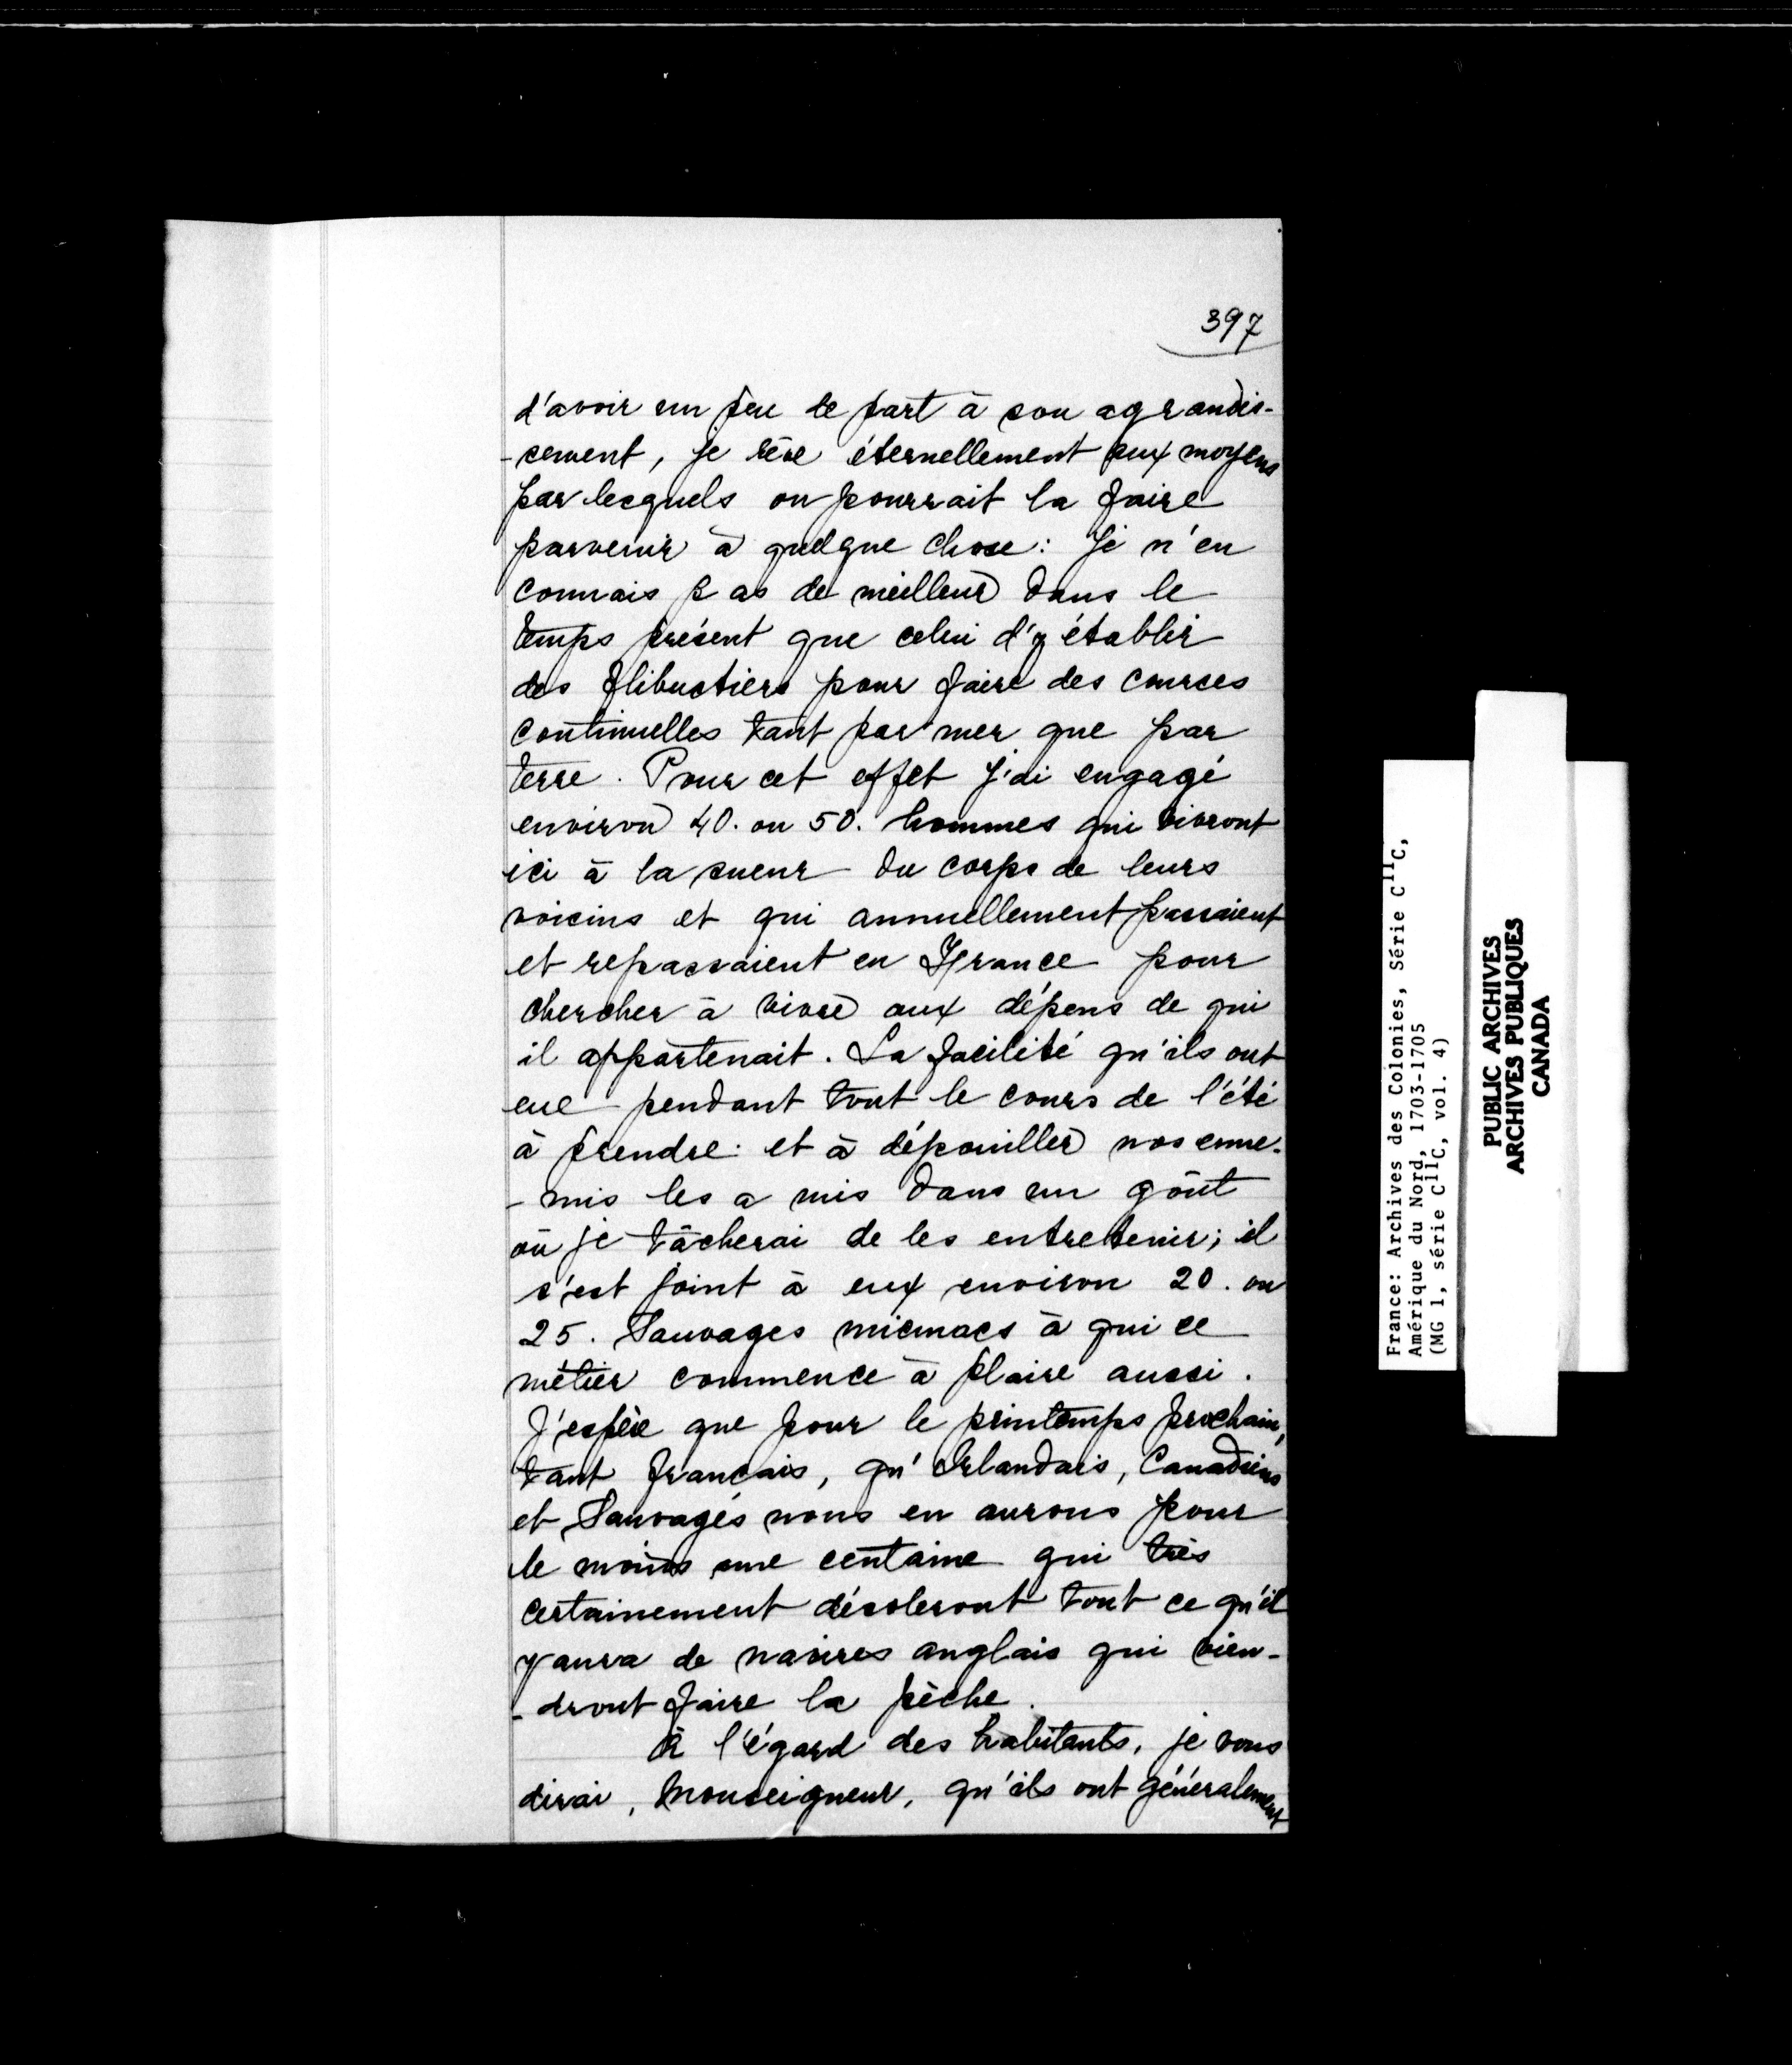 397
d'avoir un peu de part à son agrandis-
-cement, je rêve éternellement aux moyens
par lesquels on pourrait la faire
parvenir à quelque chose: Je n'en
connais pas de meilleur dans le
temps présent que celui d'y établir
des flibustiers pour faire des courses
continuelles tant par mer que par
terre. Pour cet effet j'ai engagé
environ 40. ou 50. hommes qui vivront
ici à la sueur du corps de leurs
voisins et qui annuellement passaient
et repassaient en France pour
chercher à vivre aux dépens de qui
il appartenait. La facilité qu'ils ont
eue pendant tout le cours de l'été
à prendre: et à dépouiller nos enne-
-mis les a mis dans un goût
où je tâcherai de les entretenir; il
s'est joint à eux environ 20. ou
25. Sauvages micmacs à qui ce
métier commence à plaire aussi.
J'espère que pour le printemps prochain,
tant français, qu'Irlandais, Canadiens
et Sauvages nous en aurons pour
le moins une centaine qui très
certainement désoleront tout ce qu'il
y aura de navires anglais qui vien-
-dront faire la pêche.
À l'égard des habitants, je vous
dirai, Monseigneur, qu'ils ont généralement
France: Archives des Colonies, Série C11C,
Amérique du Nord, 1703-1705
(MG 1, série C11C, vol. 4)
PUBLIC ARCHIVES
ARCHIVES PUBLIQUES
CANADA